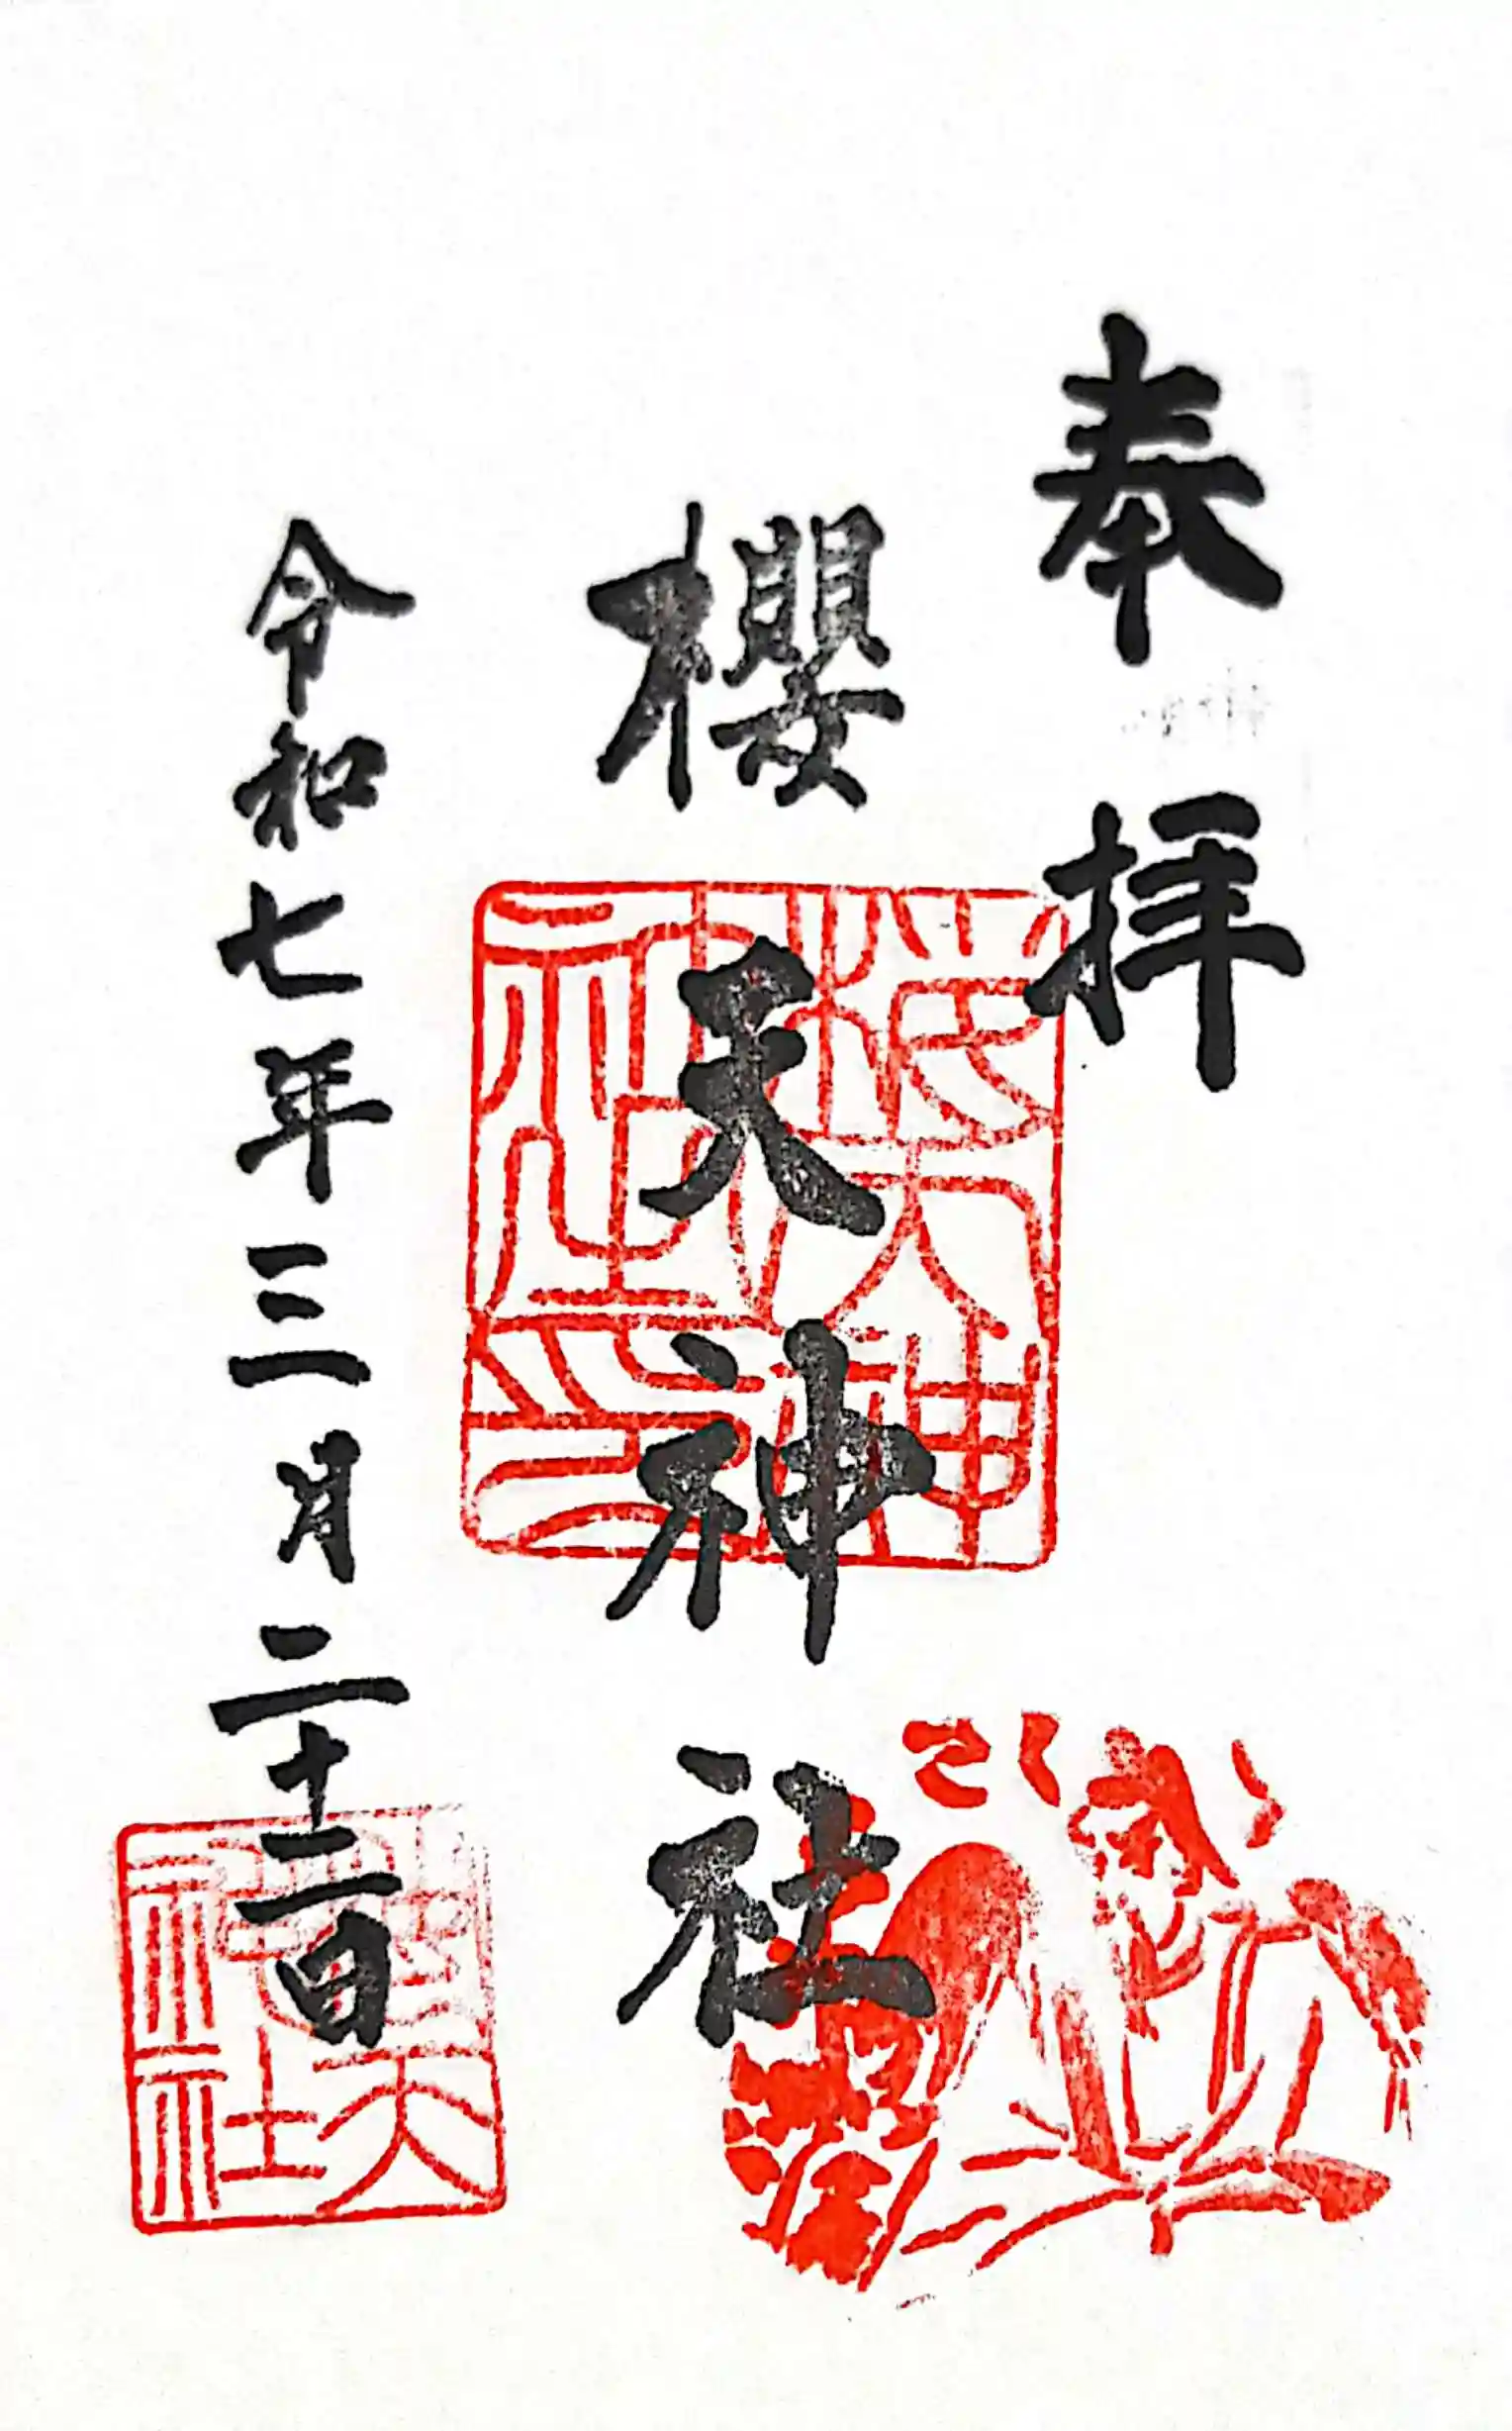 奉拝
櫻天神社
令和七年三月二十二日
櫻天神社印
櫻天神社